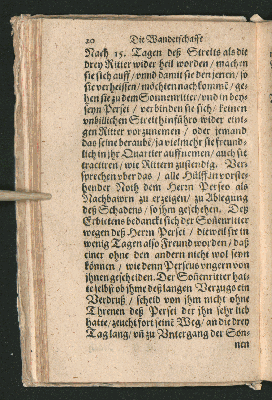 20 Die Wanderschafft
Nach 15. Tagen deß Streits als die
drey Ritter wider heil worden / machen
sie sich auff / vnnd damit sie den jenen / so
sie verheissen / möchten nachkommē / ge-
hen sie zu dem Sonnenritter / vnd in bey-
seyn Persei / verbinden sie sich / keinen
vnbillichen Streit hinführo wider eini-
gen Ritter vorzunemen / oder jemand
das seine beraubē / ja vielmehr sie freund-
lich in jhr Quartier auffnemen / auch sie
tractiren / wie Rittern zuständig. Ver-
sprechen vber das / alle Hülff in vorste-
hender Noth dem Herrn Perseo als
Nachbawrn zu erzeigen / zu Ablegung
deß Schadens / so jhn geschehen. Deß
Erbietens bedanckt sich der Soñenritter
wegen deß Herrn Persei / dieweil sie in
wenig Tagen also Freund worden / daß
einer ohne den andern nicht wol seyn
können / wie denn Perseus vngern von
jhnen gescheiden. Der Soñenritter hat-
te selbst ob jhme deß langen Verzugs ein
Verdruß / scheid von jhm nicht ohne
Threnen deß Persei der jhn sehr lieb
hatte / zeucht fort seinē Weg / an die drey
Tag lang / vñ zu Vntergang der Son-
nen